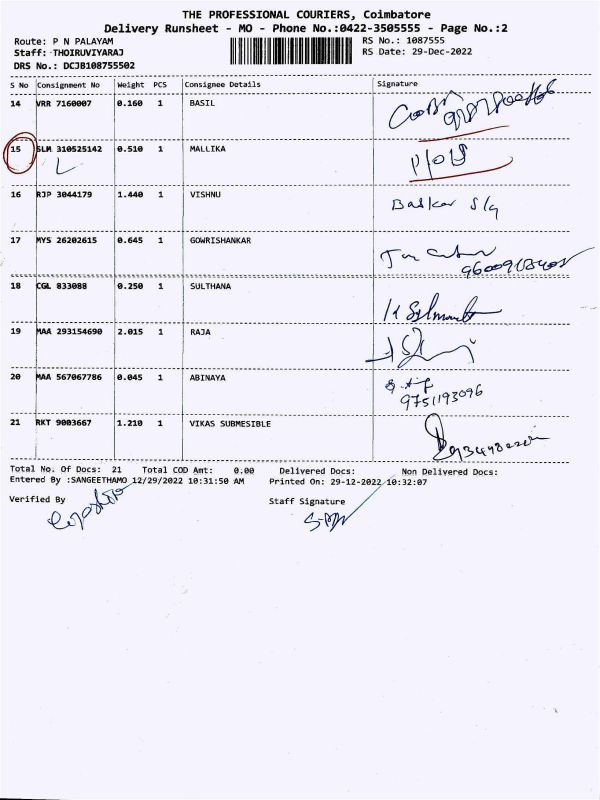 THE PROFESSIONAL COURIERS, Coimbatore
Delivery Runsheet - MO - Phone No.:0422-3505555 - Page No.:2
Route: P N PALAYAM RS No.: 1087555
Staff: THOIRUVIYARAJ RS Date: 29-Dec-2022
DRS No.: DCJB108755502
S No Consignment No Weight PCS Consignee Details Signature
14 VRR 7160007 0.160 1 BASIL
15 SLM 310525142 0.510 1 MALLIKA
L
16 RJP 3044179 1.440 1 VISHNU Baskar S/g
17 MYS 26202615 0.645 1 GOWRISHANKAR
18 CGL 833088 0.250 1 SULTHANA
19 MAA 293154690 2.015 1 RAJA
20 MAA 567067786 0.045 1 ABINAYA
9751193096
21 RKT 9003667 1.210 1 VIKAS SUBMESIBLE
Total No. Of Docs: 21 Total COD Amt: 0.00 Delivered Docs: Non Delivered Docs:
Entered By :SANGEETHAMO 12/29/2022 10:31:50 AM Printed On: 29-12-2022 10:32:07
Verified By Staff Signature